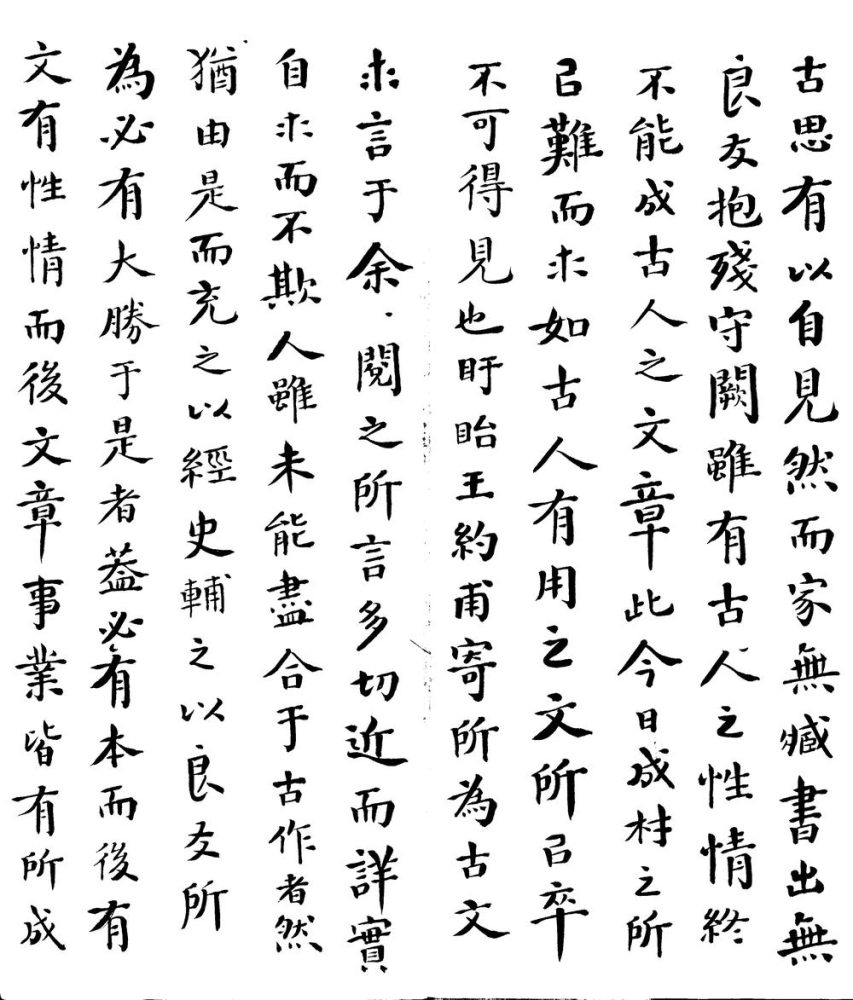 古思有以自見然而家無臧書出無
良友抱殘守闕雖有古人之性情終
不能成古人之文章此今日成材之所
已難而求如古人有用之文所已卒
不可得見也盱眙王約甫寄所為古文
求言于余、閱之所言多切近而詳實
自求而不欺人雖未能盡合于古作者然
猶由是而充之以經史輔之以良友所
為必有大勝于是者蓋必有本而後有
文有性情而後文章事業皆有所成